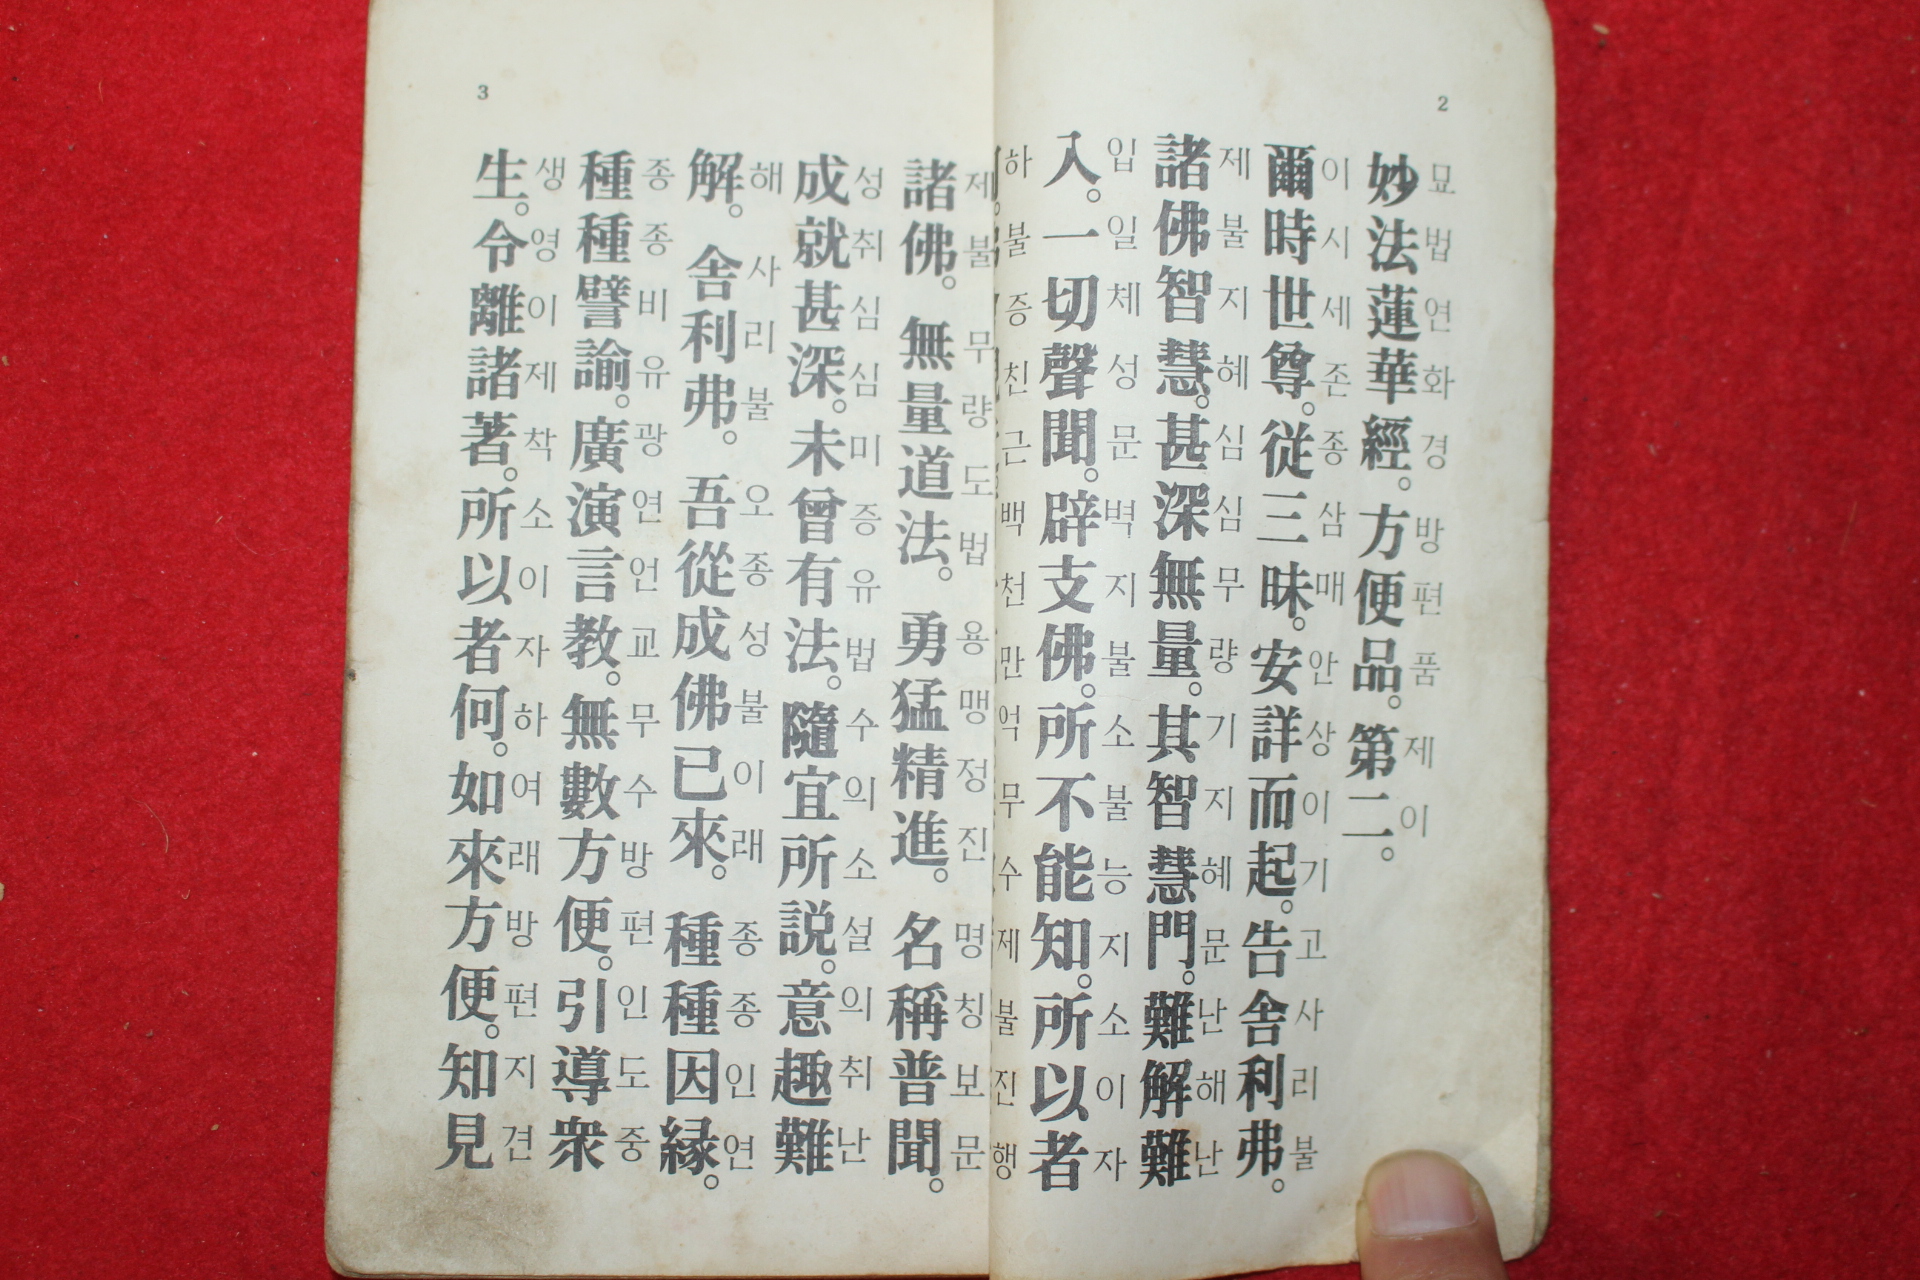 2
妙法蓮華經。方便品。第二。
묘법연화경방편품제이
爾時世尊。從三昧。安詳而起。告舍利弗。
이시세존종삼매안상이기고사리불
諸佛智慧。甚深無量。其智慧門。難解難
제불지혜심심무량기지혜문난해난
入。一切聲聞。辟支佛。所不能知。所以者
입일체성문벽지불소불능지소이자
하불증친근백천만억무수제불진행
3
諸佛。無量道法。勇猛精進。名稱普聞。
제불무량도법용맹정진명칭보문
成就甚深。未曾有法。隨宜所説。意趣難
성취심심미증유법수의소설의취난
解。舍利弗。吾從成佛已來。種種因縁。
해사리불오종성불이래종종인연
種種譬諭。廣演言教。無數方便。引導衆
종종비유광연언교무수방편인도중
生。令離諸著。所以者何。如來方便。知見
생영이제착소이자하여래방편지견